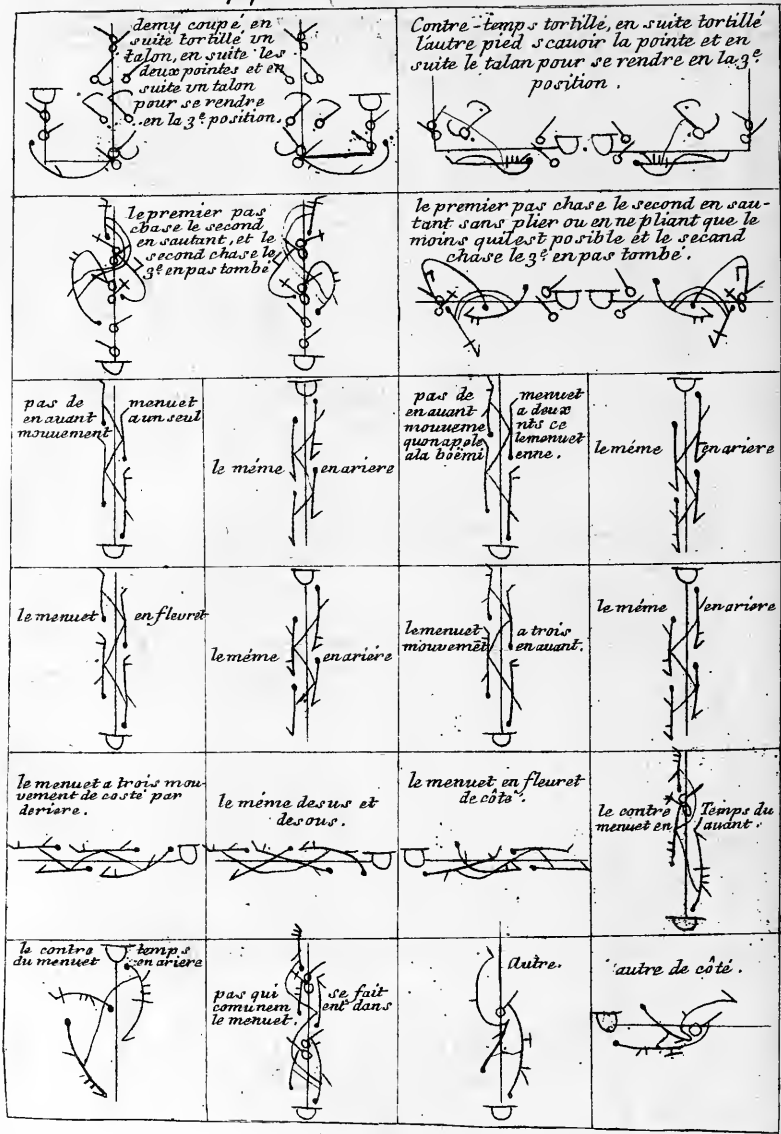 demy coupé en
suite tortillé un
talon, en suite les
deux pointes et en
suite un talon
pour se rendre
en la 3e position.
Contre-temps tortillé, en suite tortillé
l'autre pied scauoir la pointe et en
suite le talan pour se rendre en la 3e
position.
le premier pas
chase le second
en sautant, et le
second chase le
3e en pas tombé
le premier pas chase le second en sau-
tant sans plier ou en ne pliant que le
moins quil est posible et le secand
chase le 3e en pas tombé.
pas de menuet
en auant a un seul
mouuement
le méme en ariere
pas de menuet
en auant a deux
mouueme nts ce
quon apole le menuet
a la boëmi enne.
le méme en ariere
le menuet en fleuret
le méme en ariere
le menuet a trois
mouvemēt en auant.
le méme en ariere
le menuet a trois mou-
vement de costé par
deriere.
le méme desus et
desous.
le menuet en fleuret
de côté.
le contre Temps du
menuet en auant.
le contre temps
du menuet en ariere
pas qui se fait
comunem ent dans
le menuet.
Autre.
autre de côté.